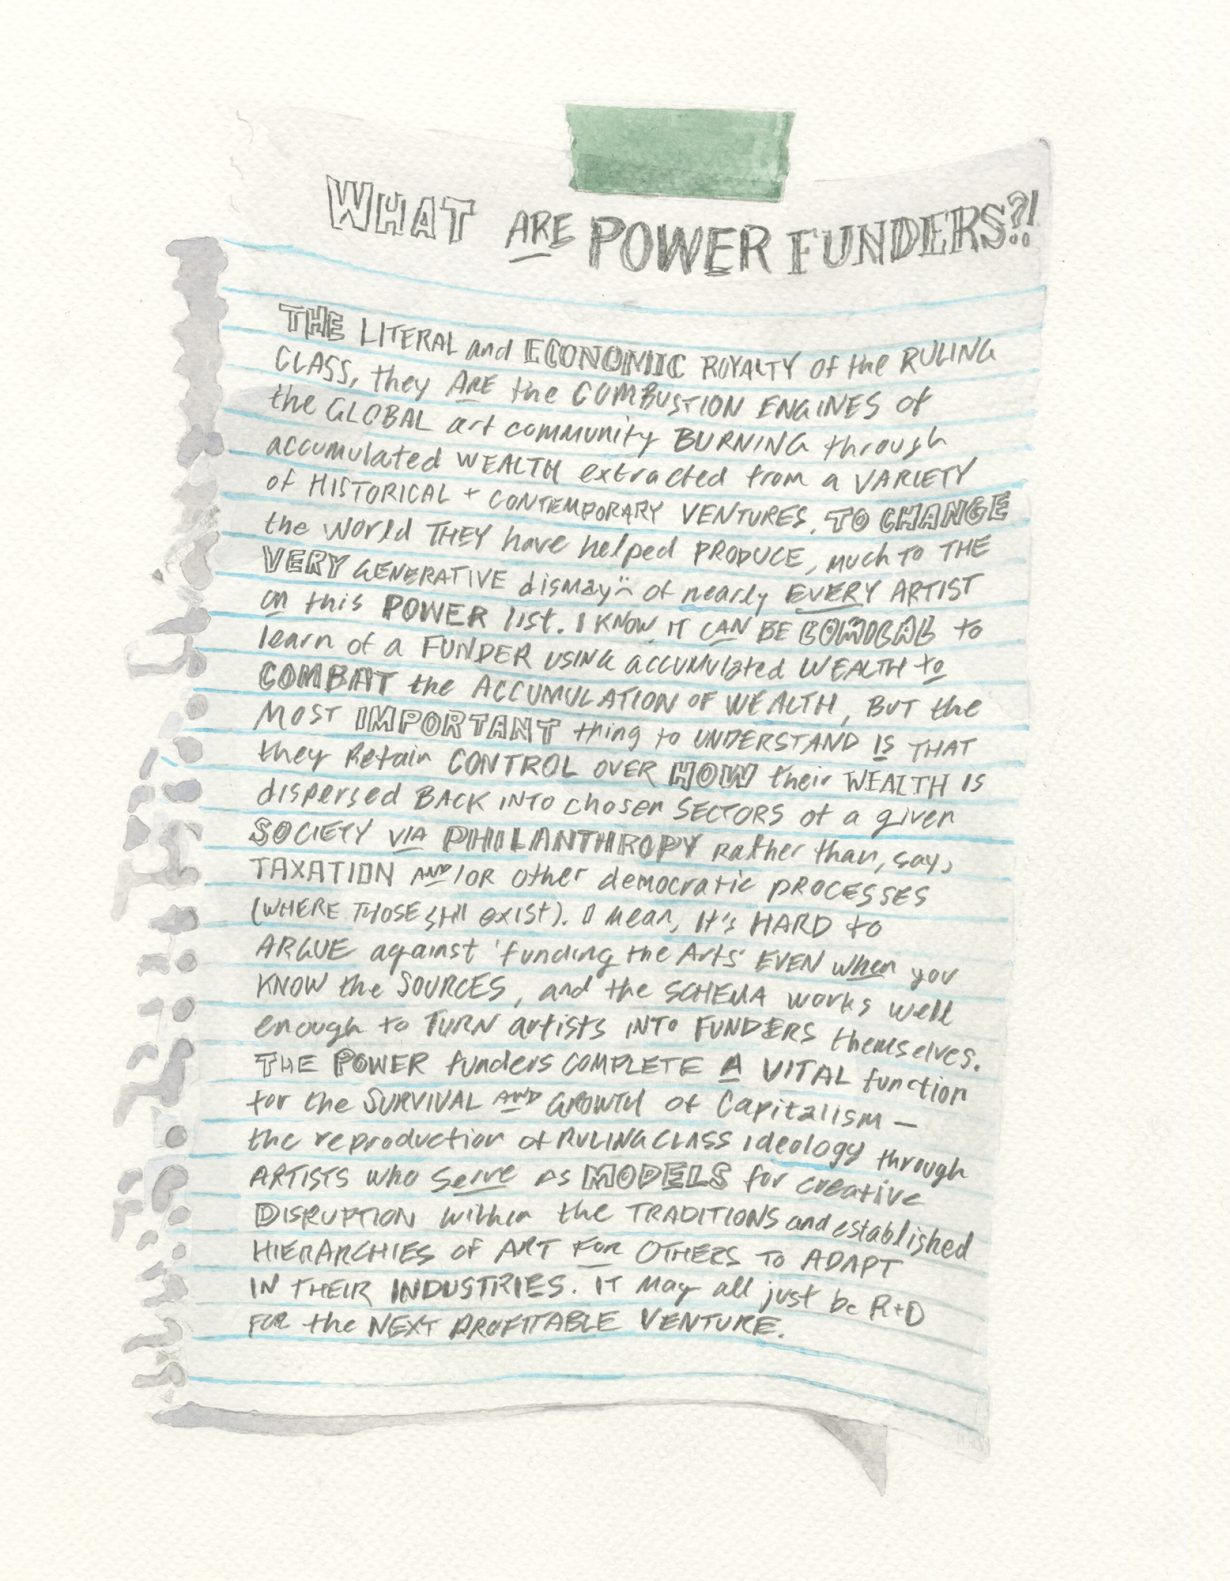 WHAT ARE POWER FUNDERS?!
THE LITERAL and ECONOMIC ROYALTY of the RULING
CLASS, they ARE the COMBUSTION ENGINES of
the GLOBAL art community BURNING through
accumulated WEALTH extracted from a VARIETY
of HISTORICAL + CONTEMPORARY VENTURES. TO CHANGE
the world THEY have helped PRODUCE, much to THE
VERY GENERATIVE dismay of nearly EVERY ARTIST
on this POWER list. I KNOW IT CAN BE COMICAL to
learn of a FUNDER USING accumulated WEALTH to
COMBAT the ACCUMULATION OF WEALTH, BUT the
MOST IMPORTANT thing to UNDERSTAND IS THAT
they Retain CONTROL OVER HOW their WEALTH IS
dispersed BACK INTO chosen SECTORS of a given
SOCIETY VIA PHILANTHROPY rather than, say,
TAXATION AND/OR other democratic PROCESSES
(WHERE THOSE still exist). I mean, it's HARD to
ARGUE against 'funding the Arts' EVEN when you
KNOW the SOURCES, and the SCHEMA works well
enough to TURN artists INTO FUNDERS themselves.
THE POWER funders COMPLETE A VITAL function
for the SURVIVAL AND GROWTH of Capitalism —
the reproduction of RULING CLASS ideology through
ARTISTS who serve as MODELS for creative
DISRUPTION within the TRADITIONS and established
HIERARCHIES of ART FOR OTHERS TO ADAPT
IN THEIR INDUSTRIES. IT may all just be R+D
FOR the NEXT PROFITABLE VENTURE.